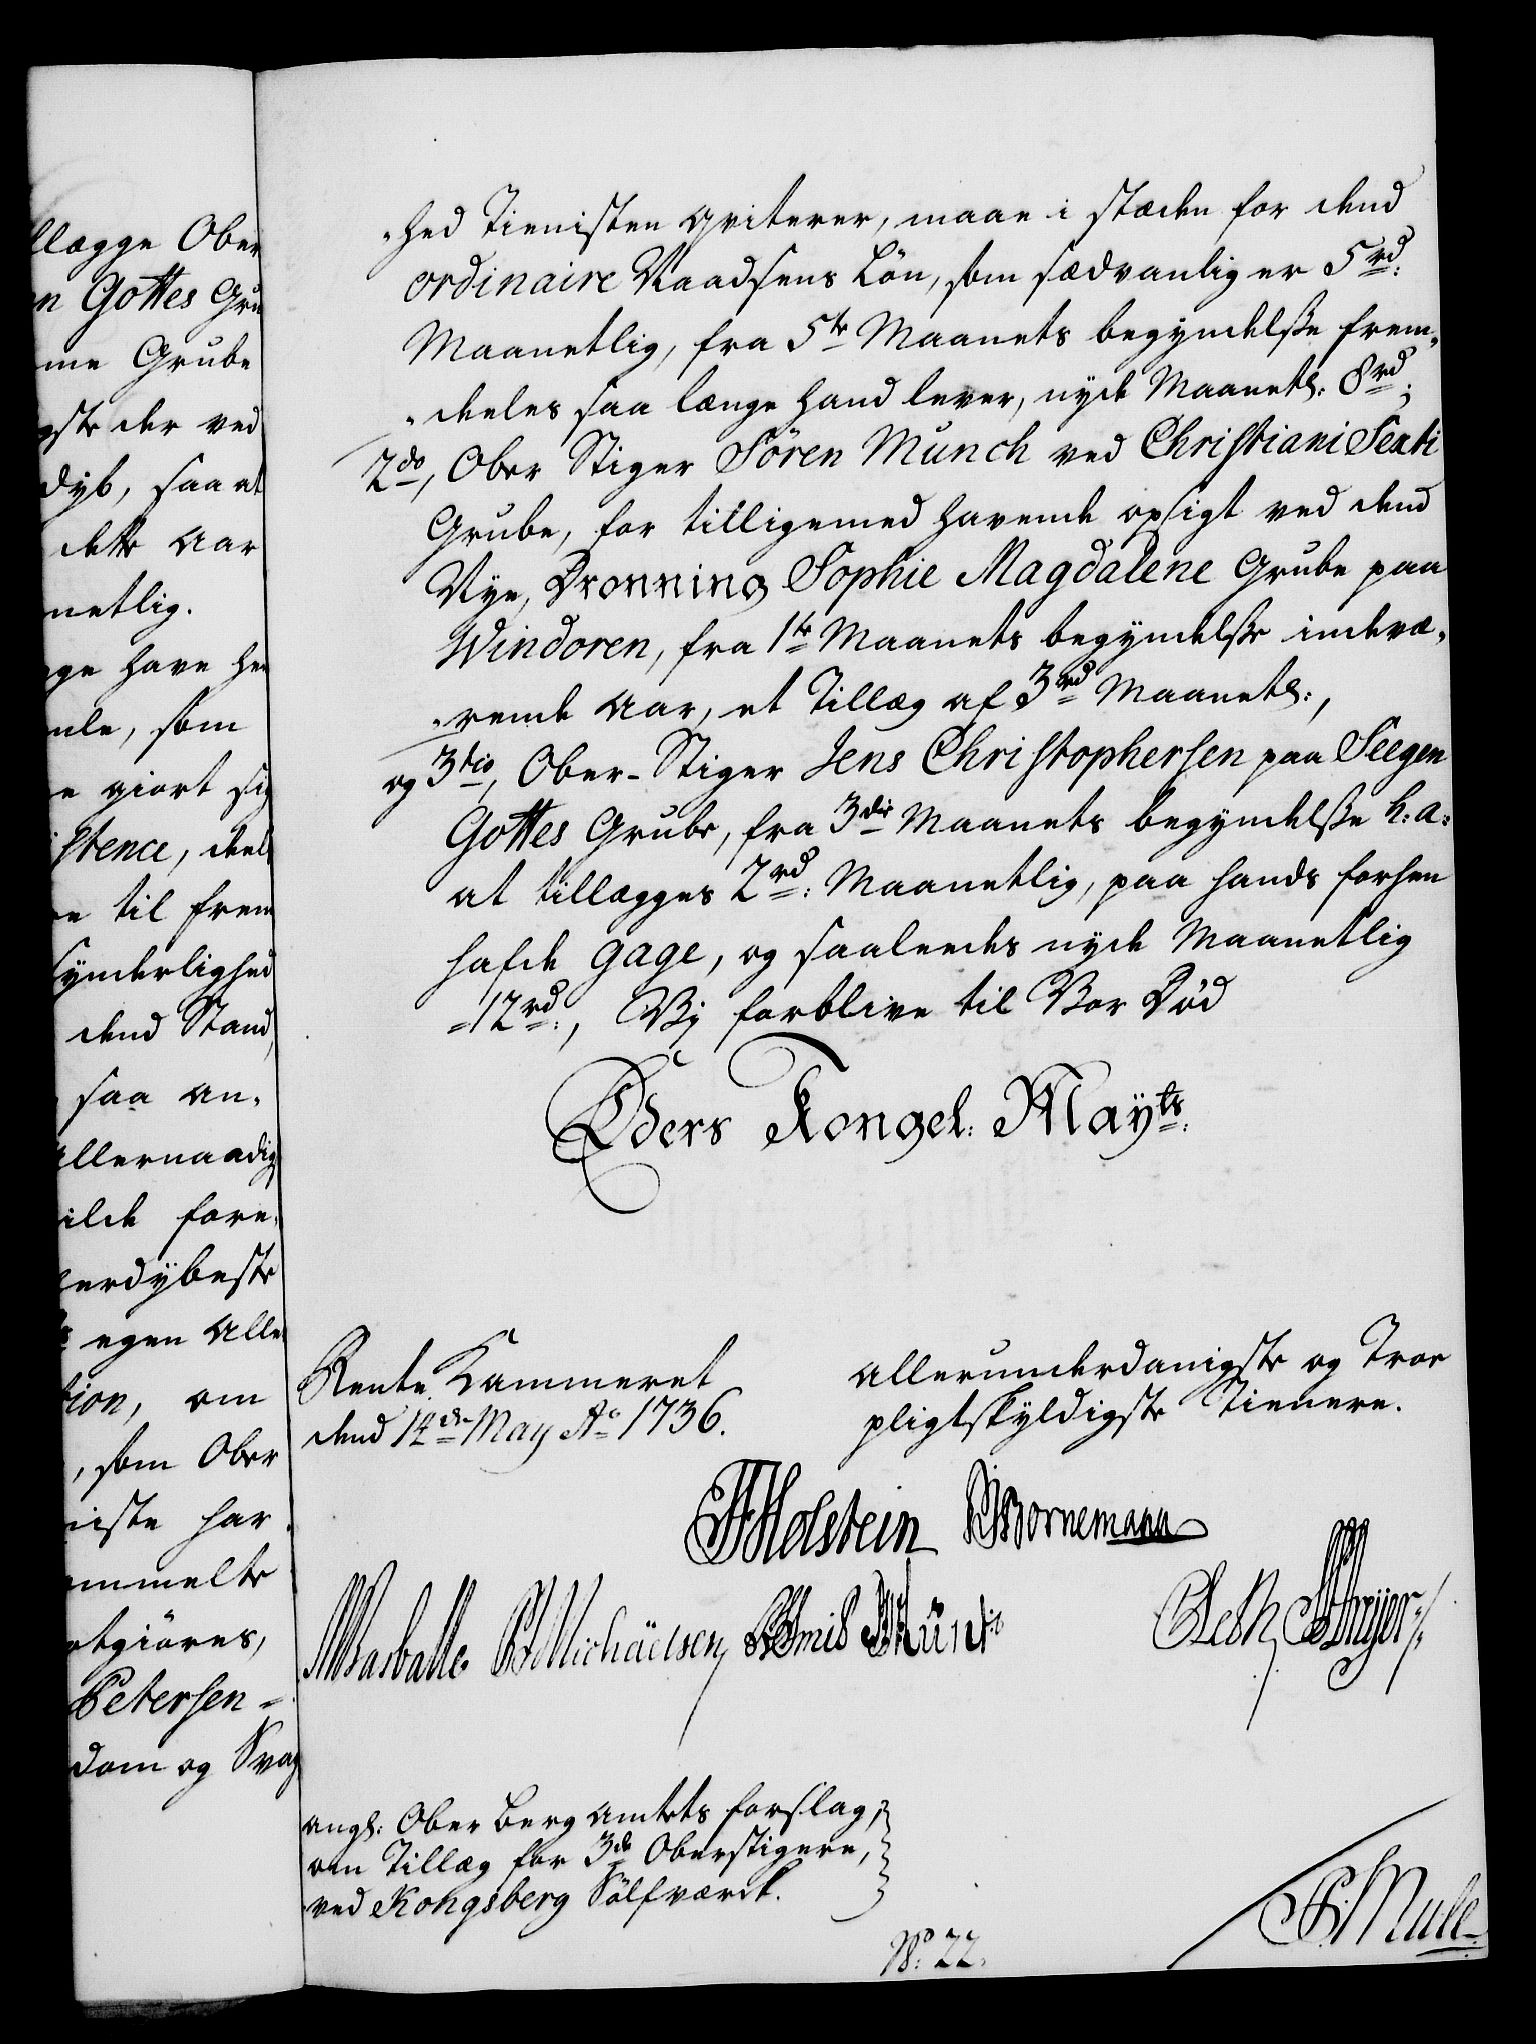 llægge Ober
n Gottes Gru
me Grube
gste der ved
dyb, saa at
dette Aar
netlig.
ge have he
nle, som
e giort sig
stence, deel
e til frem
synderlighed
dend Stand,
saa an-
allernaadig
ilde fore-
lerdybeste
egen Alle
tion, om
, som Ober
niste har
ommelte
otgiøres,
Petersen-
dom og Svag
-hed Tienisten qviterer, maae i stæden for dend
ordinaire Naadsens Løn, som sædvanlig er 5 rd:
Maanetlig, fra 5te Maanets begyndelsse frem-
-deeles saa længe hand lever, nyde Maanetl: 8 rd;
2do, Ober Stiger Sören Munch ved Christiani Sexti
Grube, for tilligemed havende opsigt ved dend
Nye, Dronning Sophie Magdalene Grube paa
Windoren, fra 1te Maanets begyndelsse indevæ-
-rende Aar, et Tillæg af 3 rd Maanetl:,
og 3tio, Ober-Stiger Jens Christophersen paa Seegen
Gottes Grube, fra 3die Maanets begyndelsse h: a:
at tillægges 2 rd: Maanetlig, paa hands forhen
hafde gage, og saaleedes nyde Maanetlig
12 rd:, Vj forblive til Vor Død
Eders Kongel: Mayts:
Rente Kammeret
dend 14de May Ao 1736.
allerunderdanigste og Troe
pligtskyldigste Tienere.
Holstein Bornemann
Basballe Michäelsen
Meyer
angl: Ober Berg Amtets forslag,
om Tillæg for 3de Oberstigere,
ved Kongsberg Sølfværck.
No: 22.
Mule